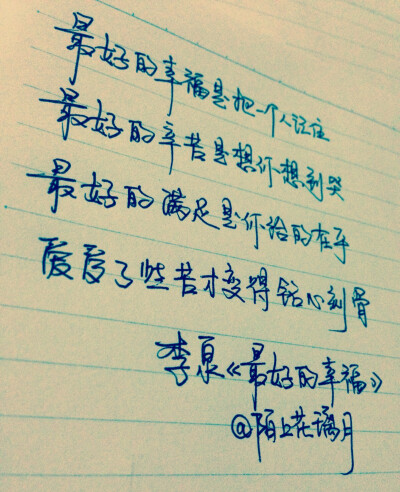 最好的幸福是把一个人记住
最好的辛苦是想你想到哭
最好的满足是你给的在乎
爱受了些苦才变得铭心刻骨
李泉《最好的幸福》
@陌上花璃月